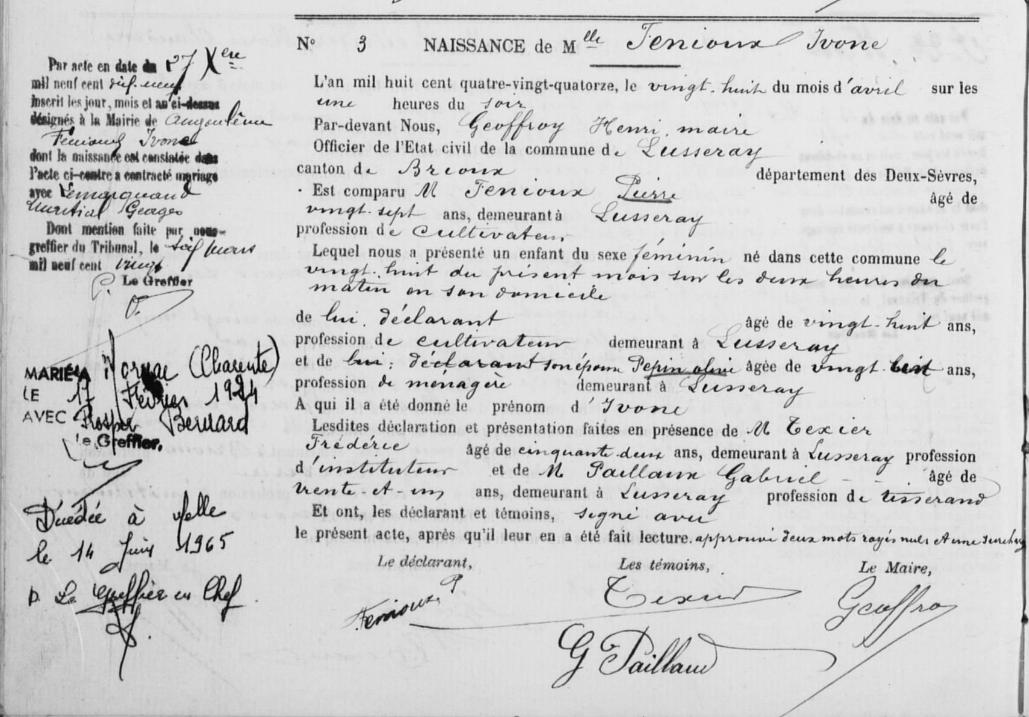 N° 3 NAISSANCE de Mlle Fenioux Ivone
L'an mil huit cent quatre-vingt-quatorze, le vingt-huit du mois d'avril sur les
une heures du soir
Par-devant Nous, Geoffroy Henri, maire
Officier de l'Etat civil de la commune de Lusseray
canton de Brioux département des Deux-Sèvres,
Est comparu M Fenioux Pierre âgé de
vingt-sept ans, demeurant à Lusseray
profession de cultivateur
Lequel nous a présenté un enfant du sexe féminin né dans cette commune le
vingt-huit du présent mois sur les deux heures du
matin en son domicile
de lui, déclarant âgé de vingt-huit ans,
profession de cultivateur demeurant à Lusseray
et de lui, déclarant son épouse Pepin âgée de vingt ans,
profession de ménagère demeurant à Lusseray
A qui il a été donné le prénom d'Ivone
Lesdites déclaration et présentation faites en présence de M Texier
Frédéric âgé de cinquante-deux ans, demeurant à Lusseray profession
d'instituteur et de M Paillaux Gabriel - - âgé de
trente-et-un ans, demeurant à Lusseray profession de tisserand
Et ont, les déclarant et témoins, signé avec
le présent acte, après qu'il leur en a été fait lecture. approuvé deux mots rayés nuls et une
Le déclarant, Les témoins, Le Maire,
Fenioux P Texier Geoffroy
G Paillaud
Par acte en date du 27 Xbre
mil neuf cent dix-neuf
inscrit les jour, mois et an ci-dessus
désignés à la Mairie de Angoulême
Fenioux Ivone
dont la naissance est constatée dans
l'acte ci-contre a contracté mariage
avec Lemarquand
Martial Georges
Dont mention faite par nous
greffier du Tribunal, le six Mars
mil neuf cent vingt
P. Le Greffier
MARIÉ A Nornac (Charente)
LE 17 Février 1924
AVEC Prosper Bernard
le Greffier.
Décédée à Melle
le 14 Juin 1965
p Le Greffier en Chef